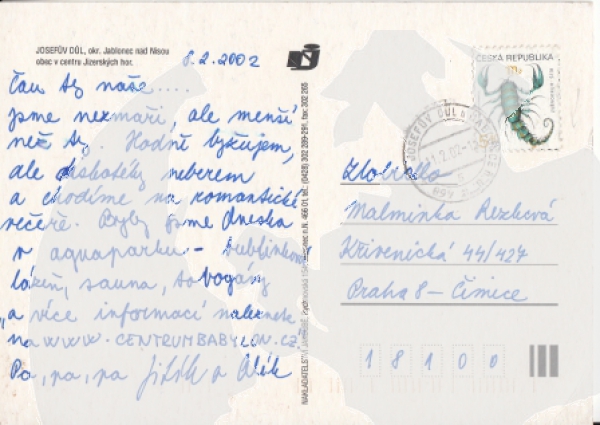 JOSEFŮV DŮL, okr. Jablonec nad Nisou
obec v centru Jizerských hor.
8.2.2002
Čau ty naše....
jsme nezmaři, ale menší
než ty. Hodně lyžujem,
ale diskotéky neberem
a chodíme na romantické
večeře. Byly jsme dneska
v aquaparku - bublinkové
lázně, sauna, tobogány
„a více informací naleznete
na WWW.CENTRUMBABYLON.CZ.
Pa, pa, pa Jiřík a Alík
ČESKÁ REPUBLIKA
JOSEFŮV DŮL
Zlobidlo
Malminka Rezková
Křivenická 44/427
Praha 8 - Čimice
18100